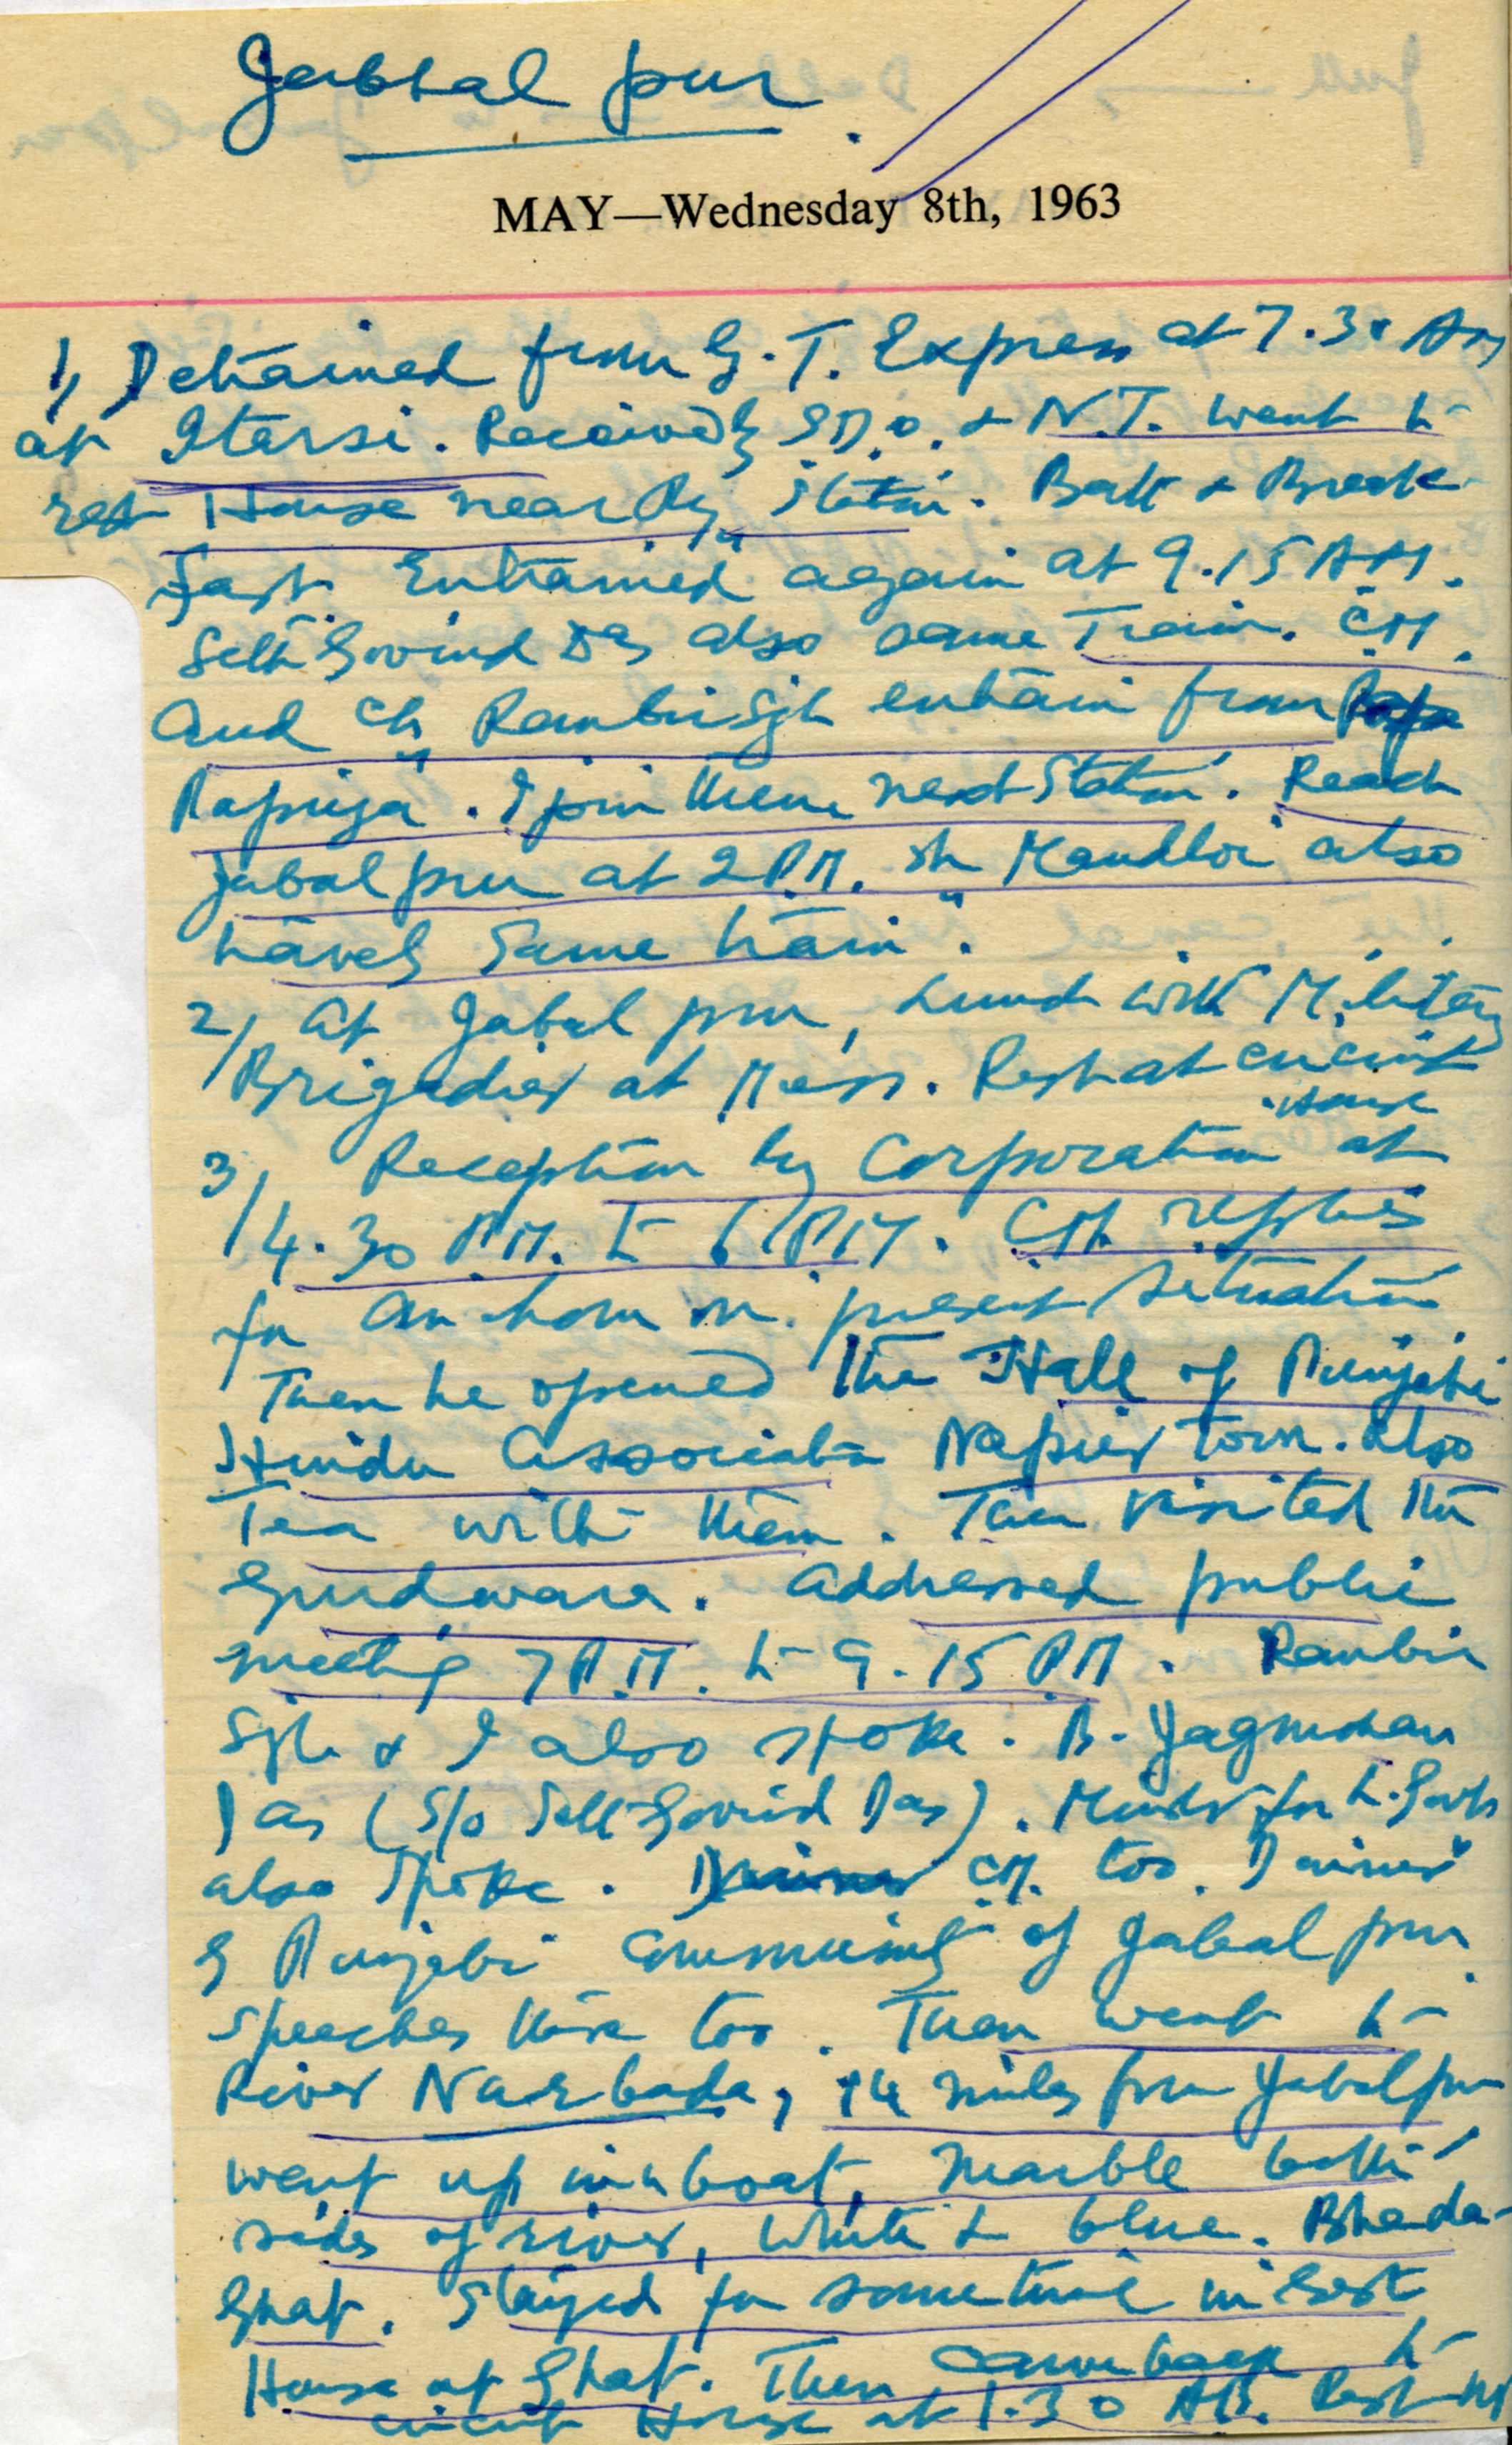 Jabbal pur.
MAY—Wednesday 8th, 1963
1, Detrained from G.T. Express at 7.30 Am
at Itarsi. Received by S.D.O. & N.T. went to
rest House near Rly Station. Bath & Break
fast. Entrained again at 9.15 AM.
Seth Govind Das also same Train. CM.
and Ch Ranbir Sgh entrain from
Papriya. I join them next Station. Reach
Jabalpur at 2 P.M. Sh Mandloi also
travels same train.
2, at Jabalpur, Lunch with Military
Brigadier at Mess. Rest at circuit
House
3, Reception by Corporation at
4.30 P.M. to 6 P.M. CM. replies
for an hour on present situation
Then he opened the Hall of Punjabi
Hindu Association Napier town. Also
Tea with them. Then visited the
Gurdwara. Addressed public
meeting 7 P.M. to 9.15 PM. Ranbir
Sgh & I also spoke. B. Jagmohan
Das (S/o Seth Govind Das). Minister for L. Govt
also spoke. CM. too. Dinner
by Punjabi Community of Jabalpur.
Speeches there too. Then went to
River Narbada, 14 miles from Jabalpur
went up in a boat, Marble both
sides of river, white & blue. Bheda-
Ghat. Stayed for sometime in Rest
House at Ghat. Then came back to
circuit House at 1.30 AM. Rest